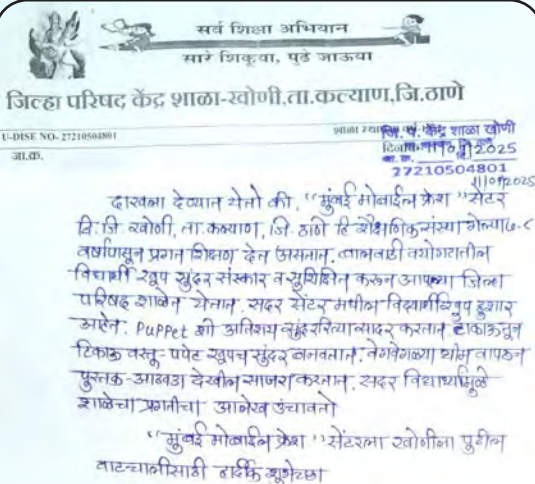 सर्व शिक्षा अभियान
सारे शिकूया, पुढे जाऊया
जिल्हा परिषद केंद्र शाळा-खोणी,ता.कल्याण,जि.ठाणे
U-DISE NO- 27210504801
जि. प. केंद्र शाळा खोणी
जा.क्र.
2025
27210504801
दाखला देण्यात येतो की, "मुंबई मोबाईल क्रेश" सेंटर
खोणी, ता. कल्याण, जि. ठाणे हि शैक्षणिक संस्था गेल्या ७-८
वर्षांपासून प्रगत शिक्षण देत असतात. बालवाडी वयोगटातील
विद्यार्थी खूप सुंदर संस्कार व सुशिक्षित करून आपल्या जिल्हा
परिषद शाळेत येतात. सदर सेंटर मधील विद्यार्थी खुप हुशार
आहेत. Puppet शो अतिशय सुंदररित्या सादर करतात टाकाऊतून
टिकाऊ वस्तू - पपेट खुपच सुंदर बनवतात. वेगवेगळ्या थीम वापरून
पुस्तक-आठवडा देखील साजरा करतात. सदर विद्यार्थ्यांमुळे
शाळेचा प्रगतीचा आलेख उंचावतो
"मुंबई मोबाईल क्रेश" सेंटरला खोणीला पुढील
वाटचालीसाठी हार्दिक शुभेच्छा